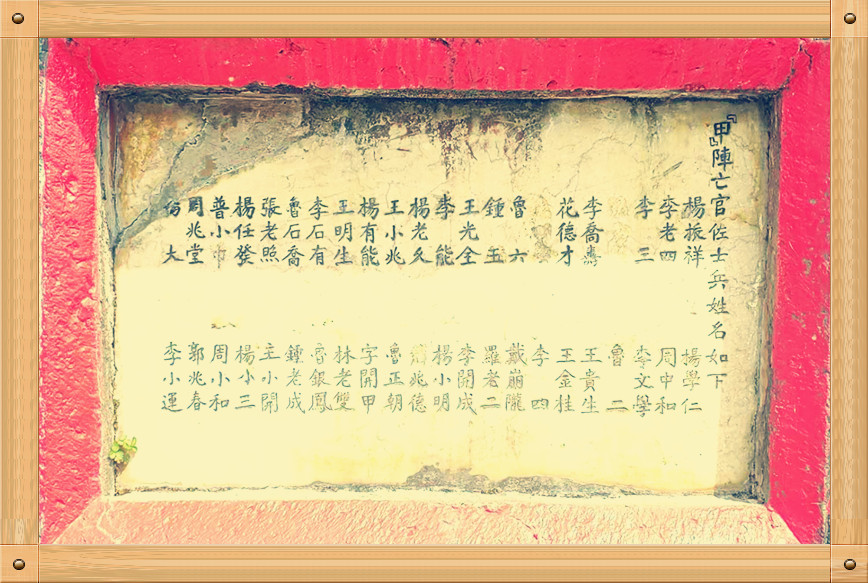 『甲』陣亡官佐士兵姓名如下
楊振祥
李老四
李三
李喬壽
花德才
魯六
鍾五
王光全
李能
楊老久
王小兆
楊有能
王明生
李石有
魯石喬
張老照
楊任發
普小
周兆堂
大
揚學仁
周中和
李文學
魯二
王貴生
王金桂
李四
戴崩隴
羅老二
李開成
楊小明
兆德
魯正朝
字開甲
林老雙
魯銀鳳
鍾老成
主小開
楊小三
周小和
郭兆春
李小運